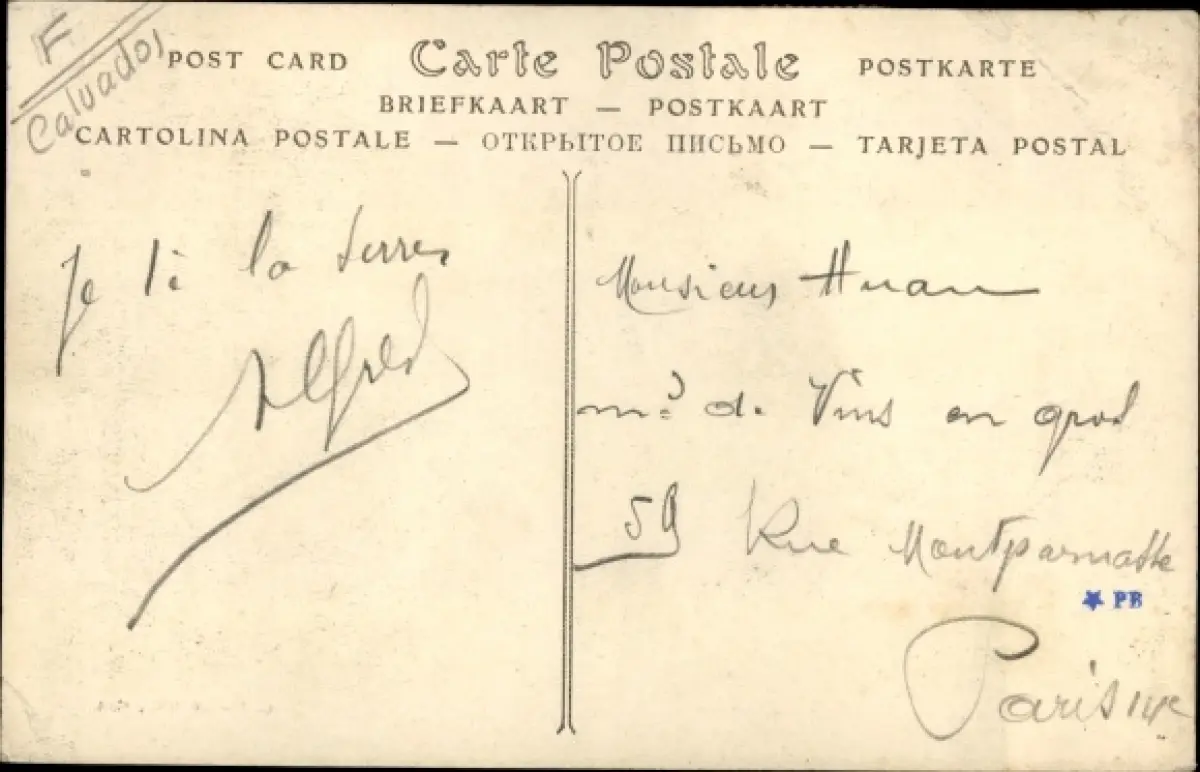 F
Calvados
POST CARD Carte Postale POSTKARTE
BRIEFKAART — POSTKAART
CARTOLINA POSTALE — ОТКРЫТОЕ ПИСЬМО — TARJETA POSTAL
Je ti la serres
Alfred
Monsieur Huan
md de Vins en gros
59 Rue Montparnasse
PB
Paris 14e